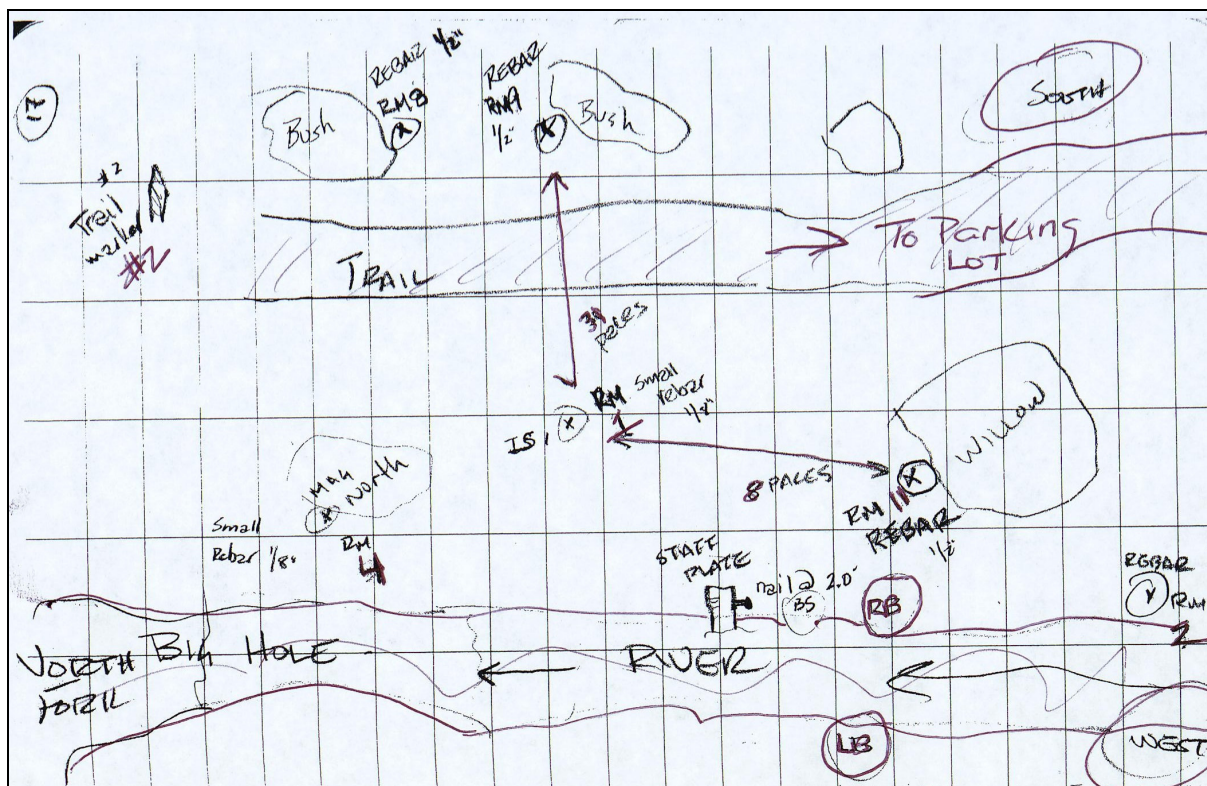 REBAR 1/2"
RM8
REBAR
RM9
1/2"
Bush
Bush
SOUTH
#2
Trail
marker
#2
TRAIL
To Parking
LOT
paces
RM
1
Small
rebar
1/8"
Willow
8 PACES
RM 11
REBAR
1/2"
North
Small
Rebar 1/8"
RM
4
STAFF
PLATE
nail @ 2.0'
BS
RB
REBAR
RM
2
NORTH
FORK
BIG HOLE
RIVER
LB
WEST